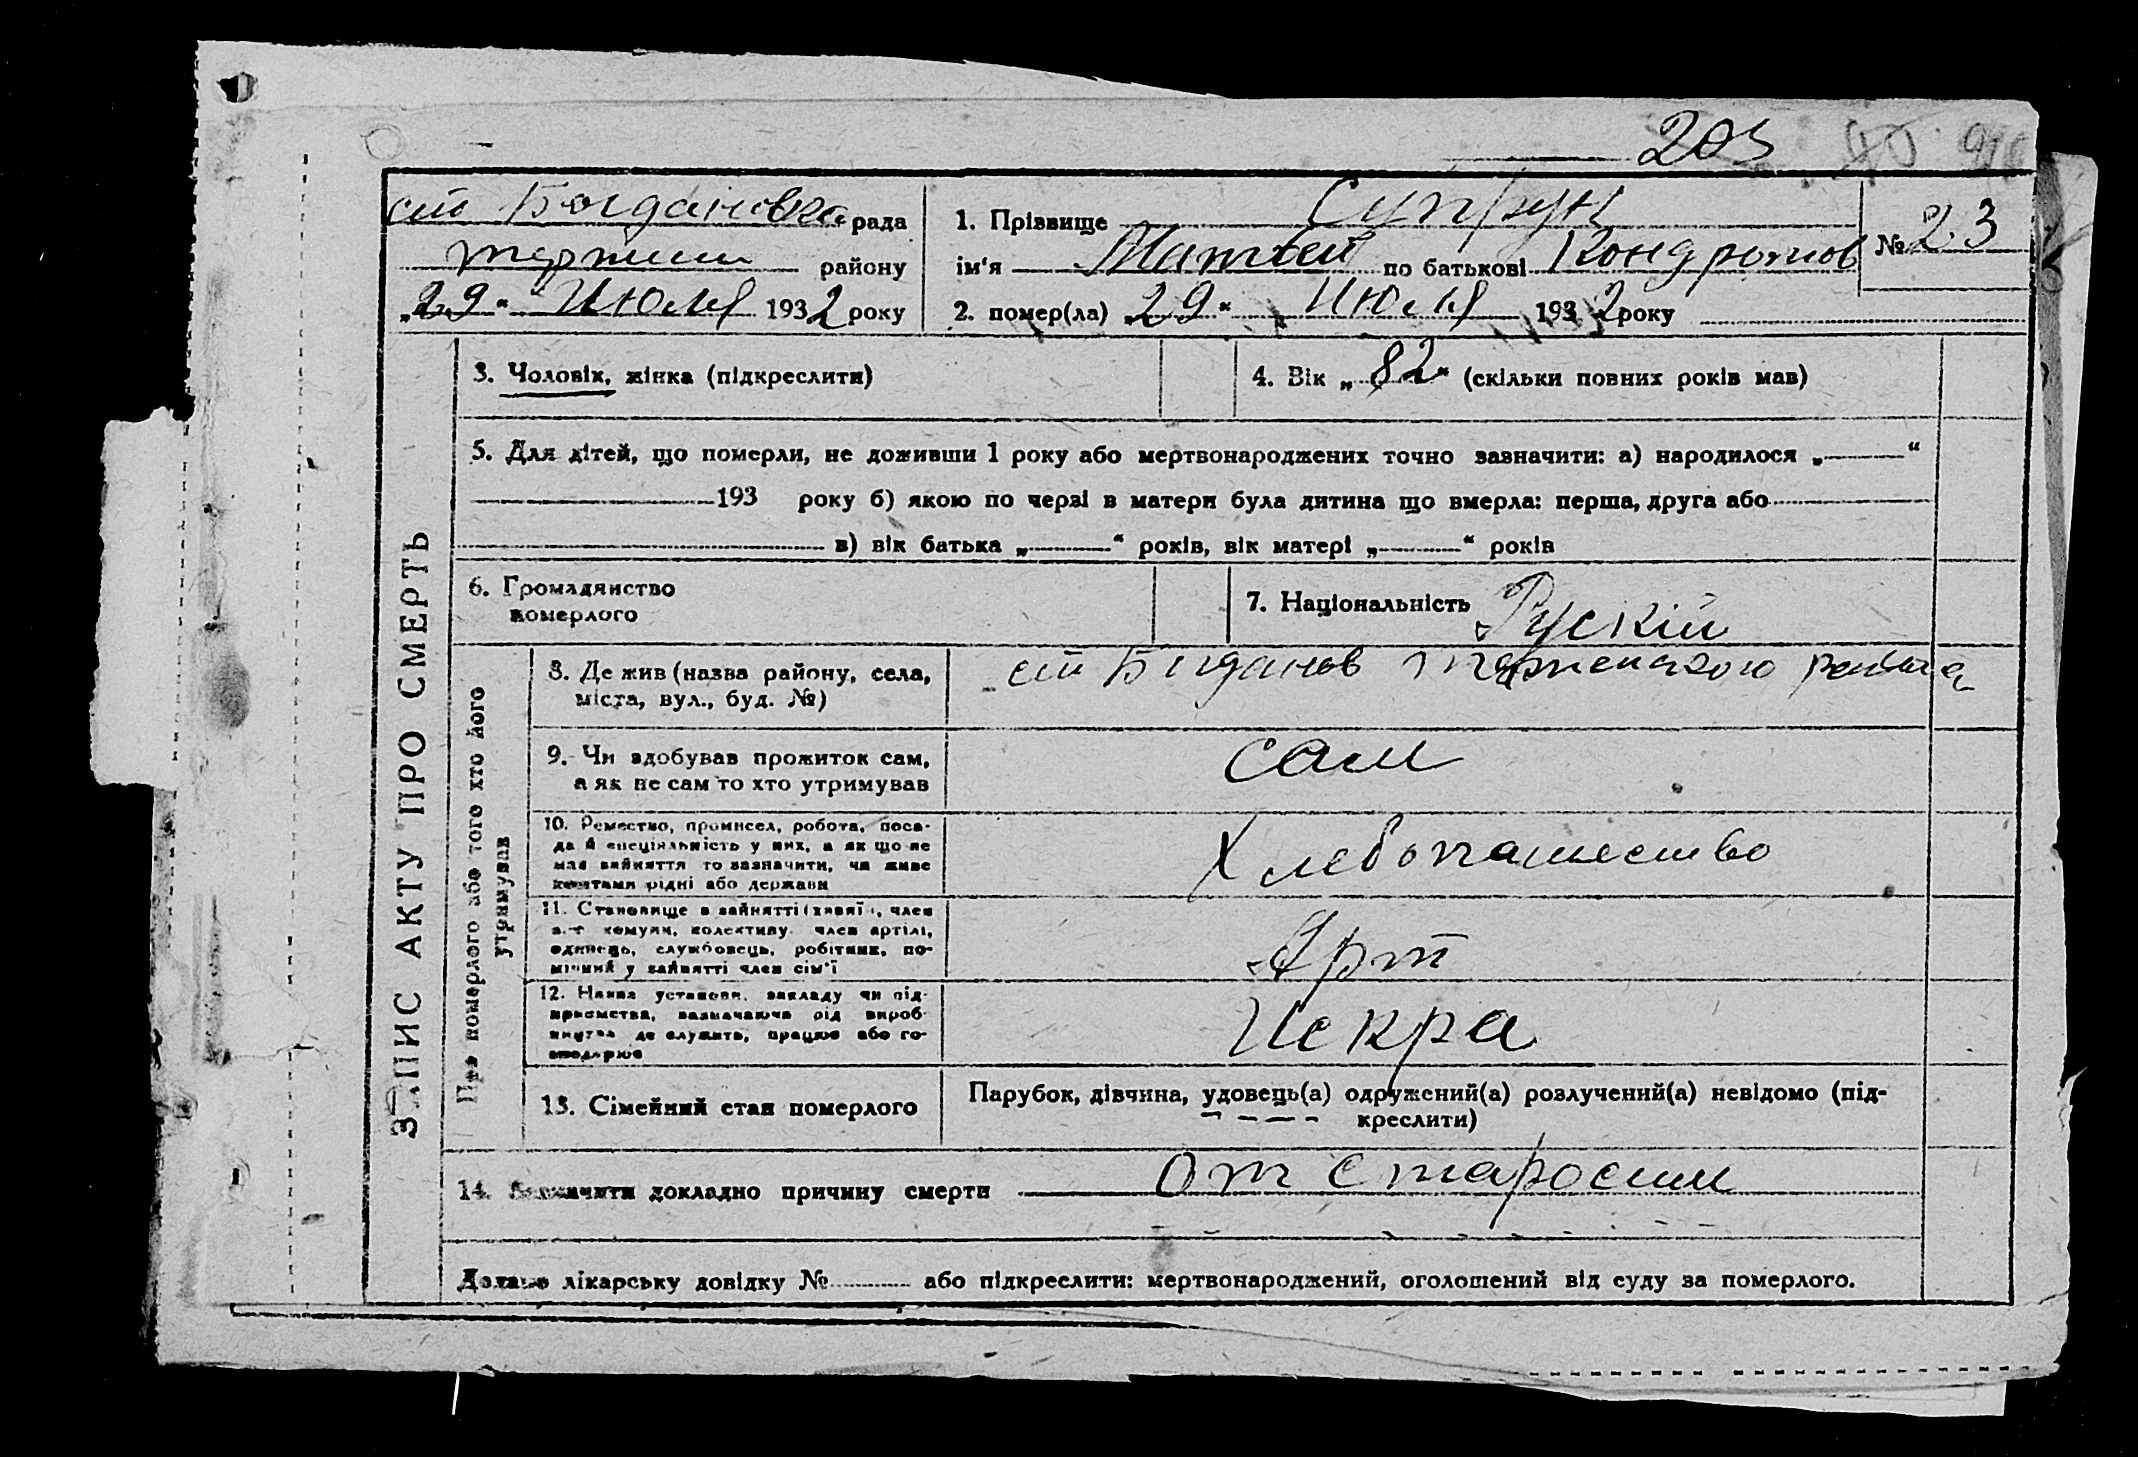 203
ст Богдановка рада
району
„29“ Июля 1932 року
1. Прізвище Супрун
ім‘я Матвей по батькові Кондратов
№ 23
2. помер(ла) „29“ Июля 1932 року
ЗАПИС АКТУ ПРО СМЕРТЬ
3. Чоловік, жінка (підкреслити)
4. Вік „82“ (скільки повних років мав)
5. Для дітей, що померли, не доживши 1 року або мертвонароджених точно зазначити: а) народилося „ “
193 року б) якою по черзі в матери була дитина що вмерла: перша, друга або
в) вік батька „ “ років, вік матері „ “ років
6. Громадянство
померлого
7. Національність Рускій
Про померлого або того хто його
утримував
8. Де жив (назва району, села,
міста, вул., буд. №)
ст Богданов района
9. Чи здобував прожиток сам,
а як не сам то хто утримував
сам
10. Ремество, промисел, робота, поса-
да й спеціяльність у них, а як що не
мав зайняття то зазначити, чи живе
коштами рідні або держави
Хлебопашество
11. Становище в зайнятті член
комуни, колективу член артілі,
одинець, службовець, робітник, по-
мічний у зайнятті член сім‘ї
Арт
12. Назва установи, закладу чи під-
приємства, зазначаючи рід вироб-
ництва де служить, працює або го-
сподарює
Искра
13. Сімейний стан померлого
Парубок, дівчина, удовець(а) одружений(а) розлучений(а) невідомо (під-
креслити)
14. Зазначити докладно причину смерти От старости
Додано лікарську довідку № або підкреслити: мертвонароджений, оголошений від суду за померлого.